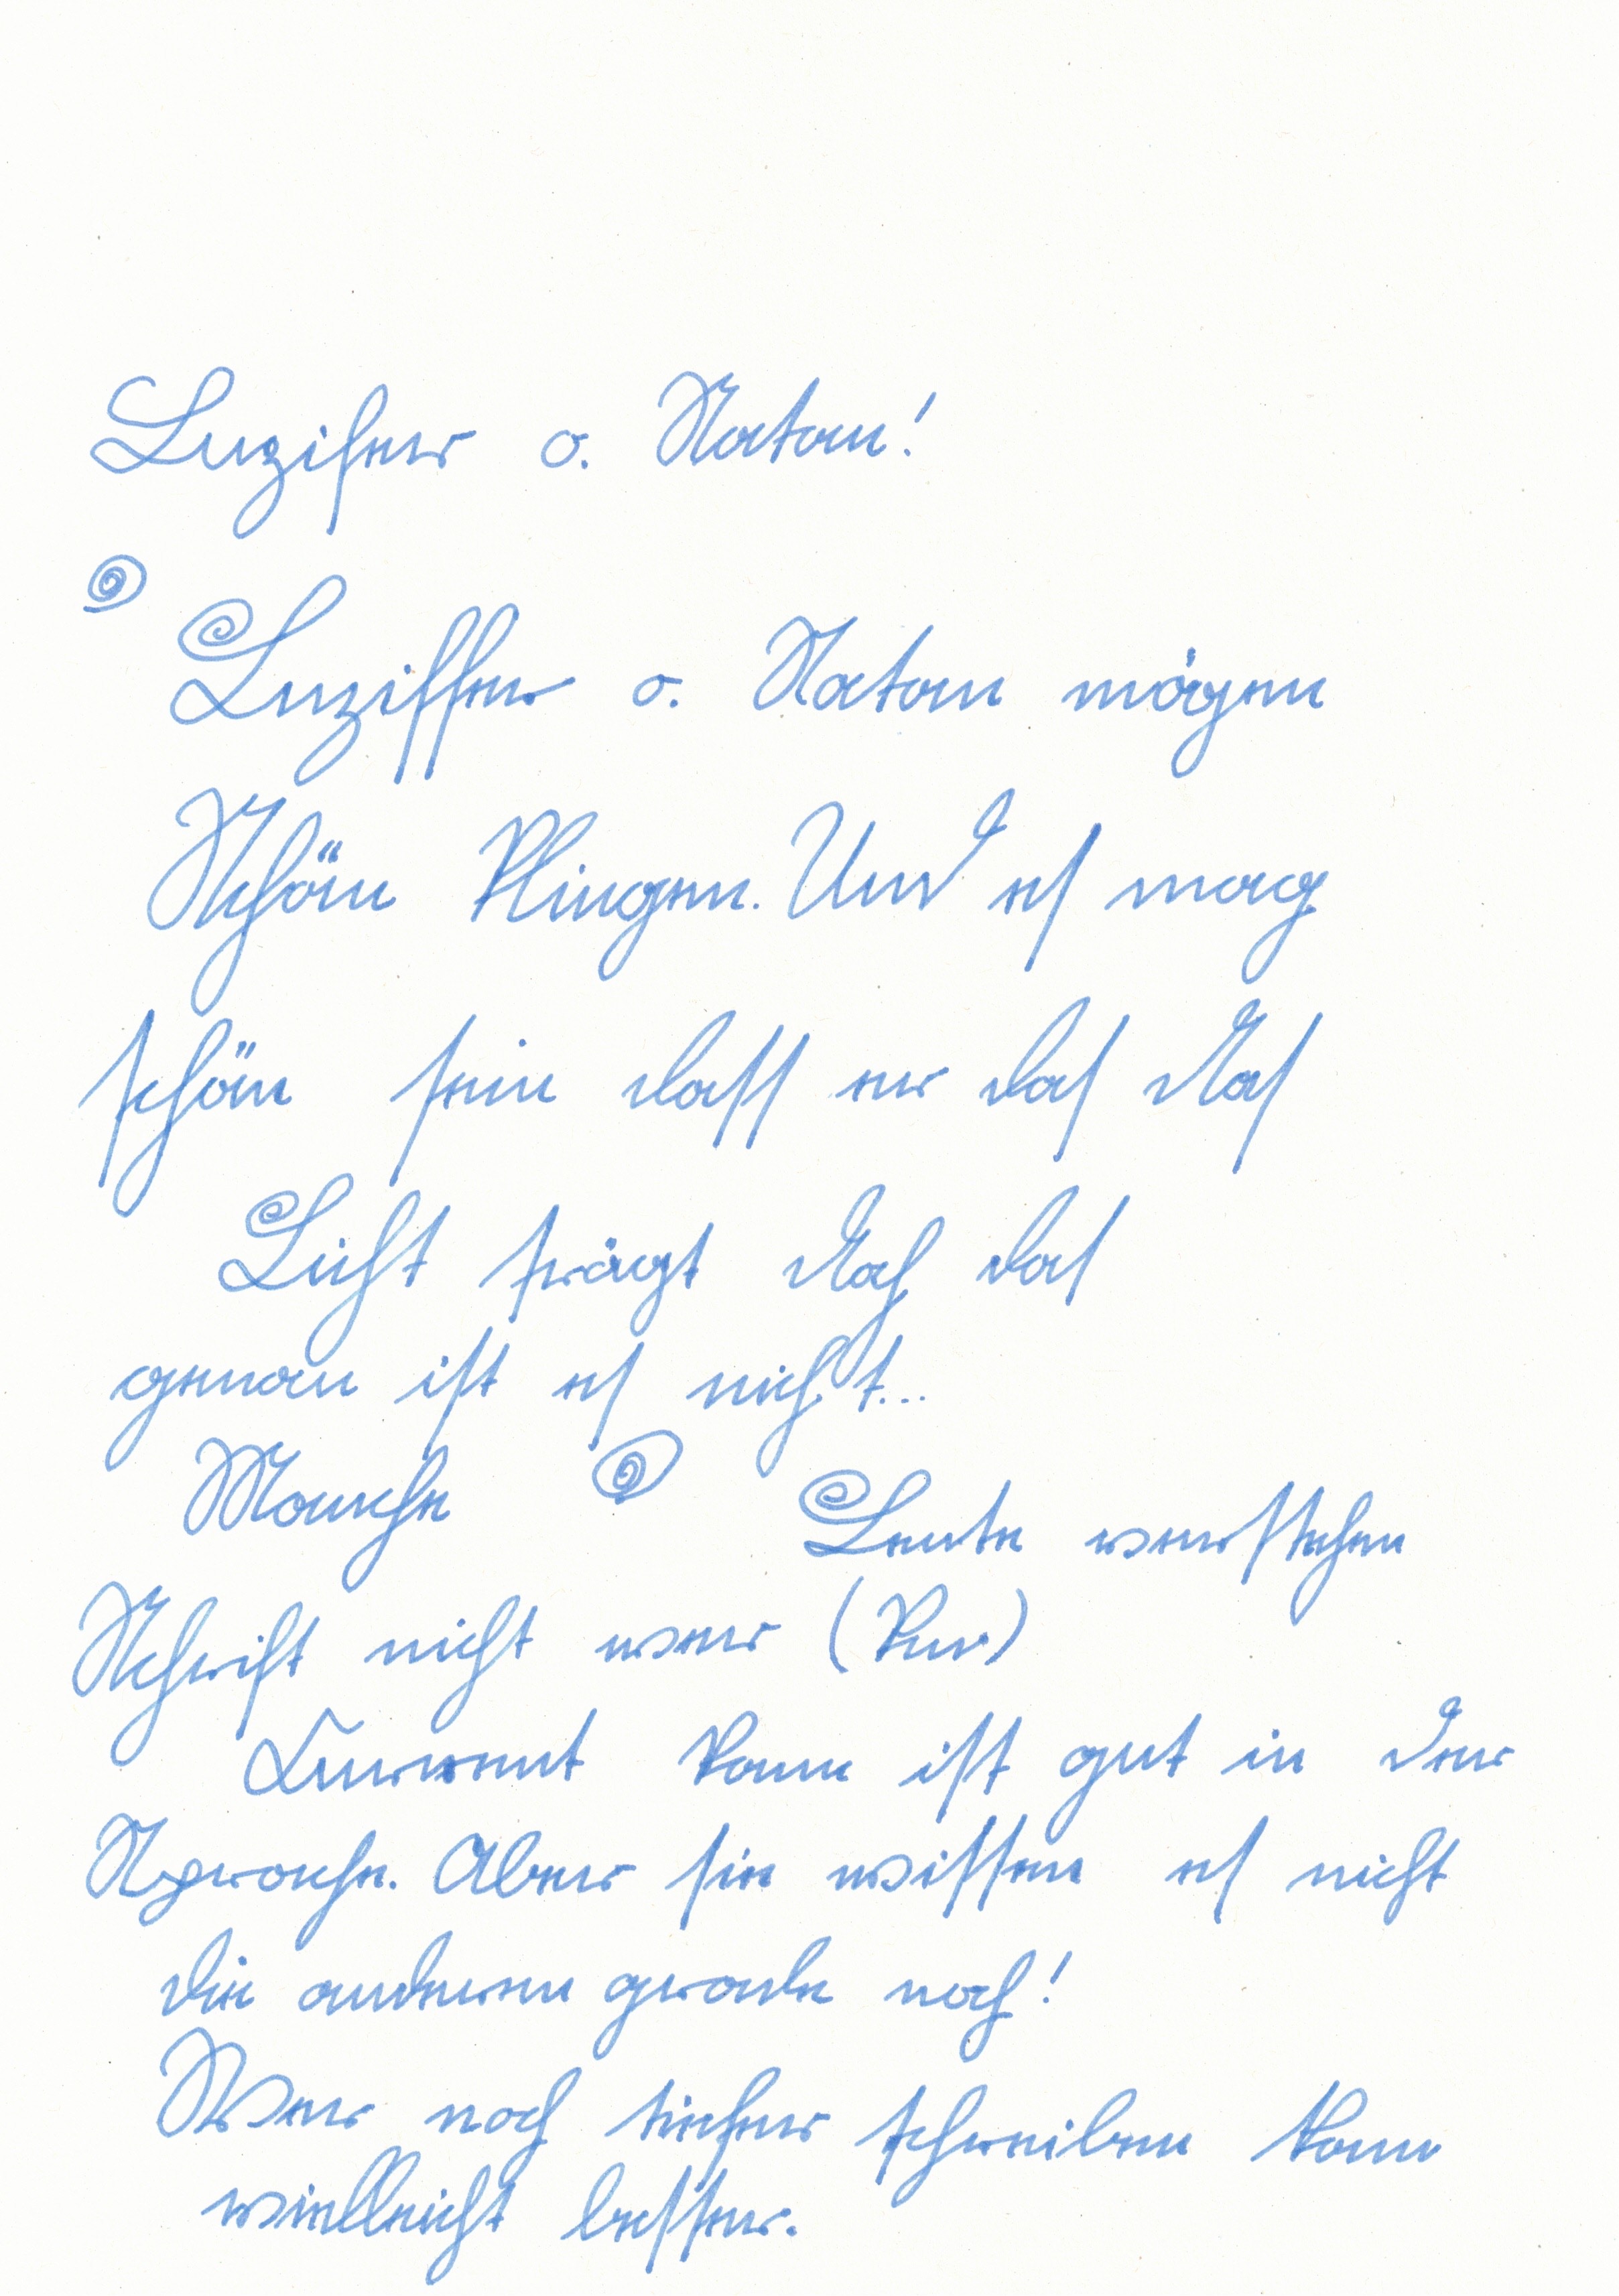 Luzifer o. Satan!
Luziffer o. Satan mögen
Schön Klingen. Und es mag
schön sein dass er das das
Licht trägt doch das
genau ist es nicht...
Manche Leute werstehen
Schrift nicht wer (Kur)
kann ist gut in der
Sprache. Aber sie wissen es nicht
die anderen grade noch!
Wer noch sicher schreiben kann
wielleicht besser.